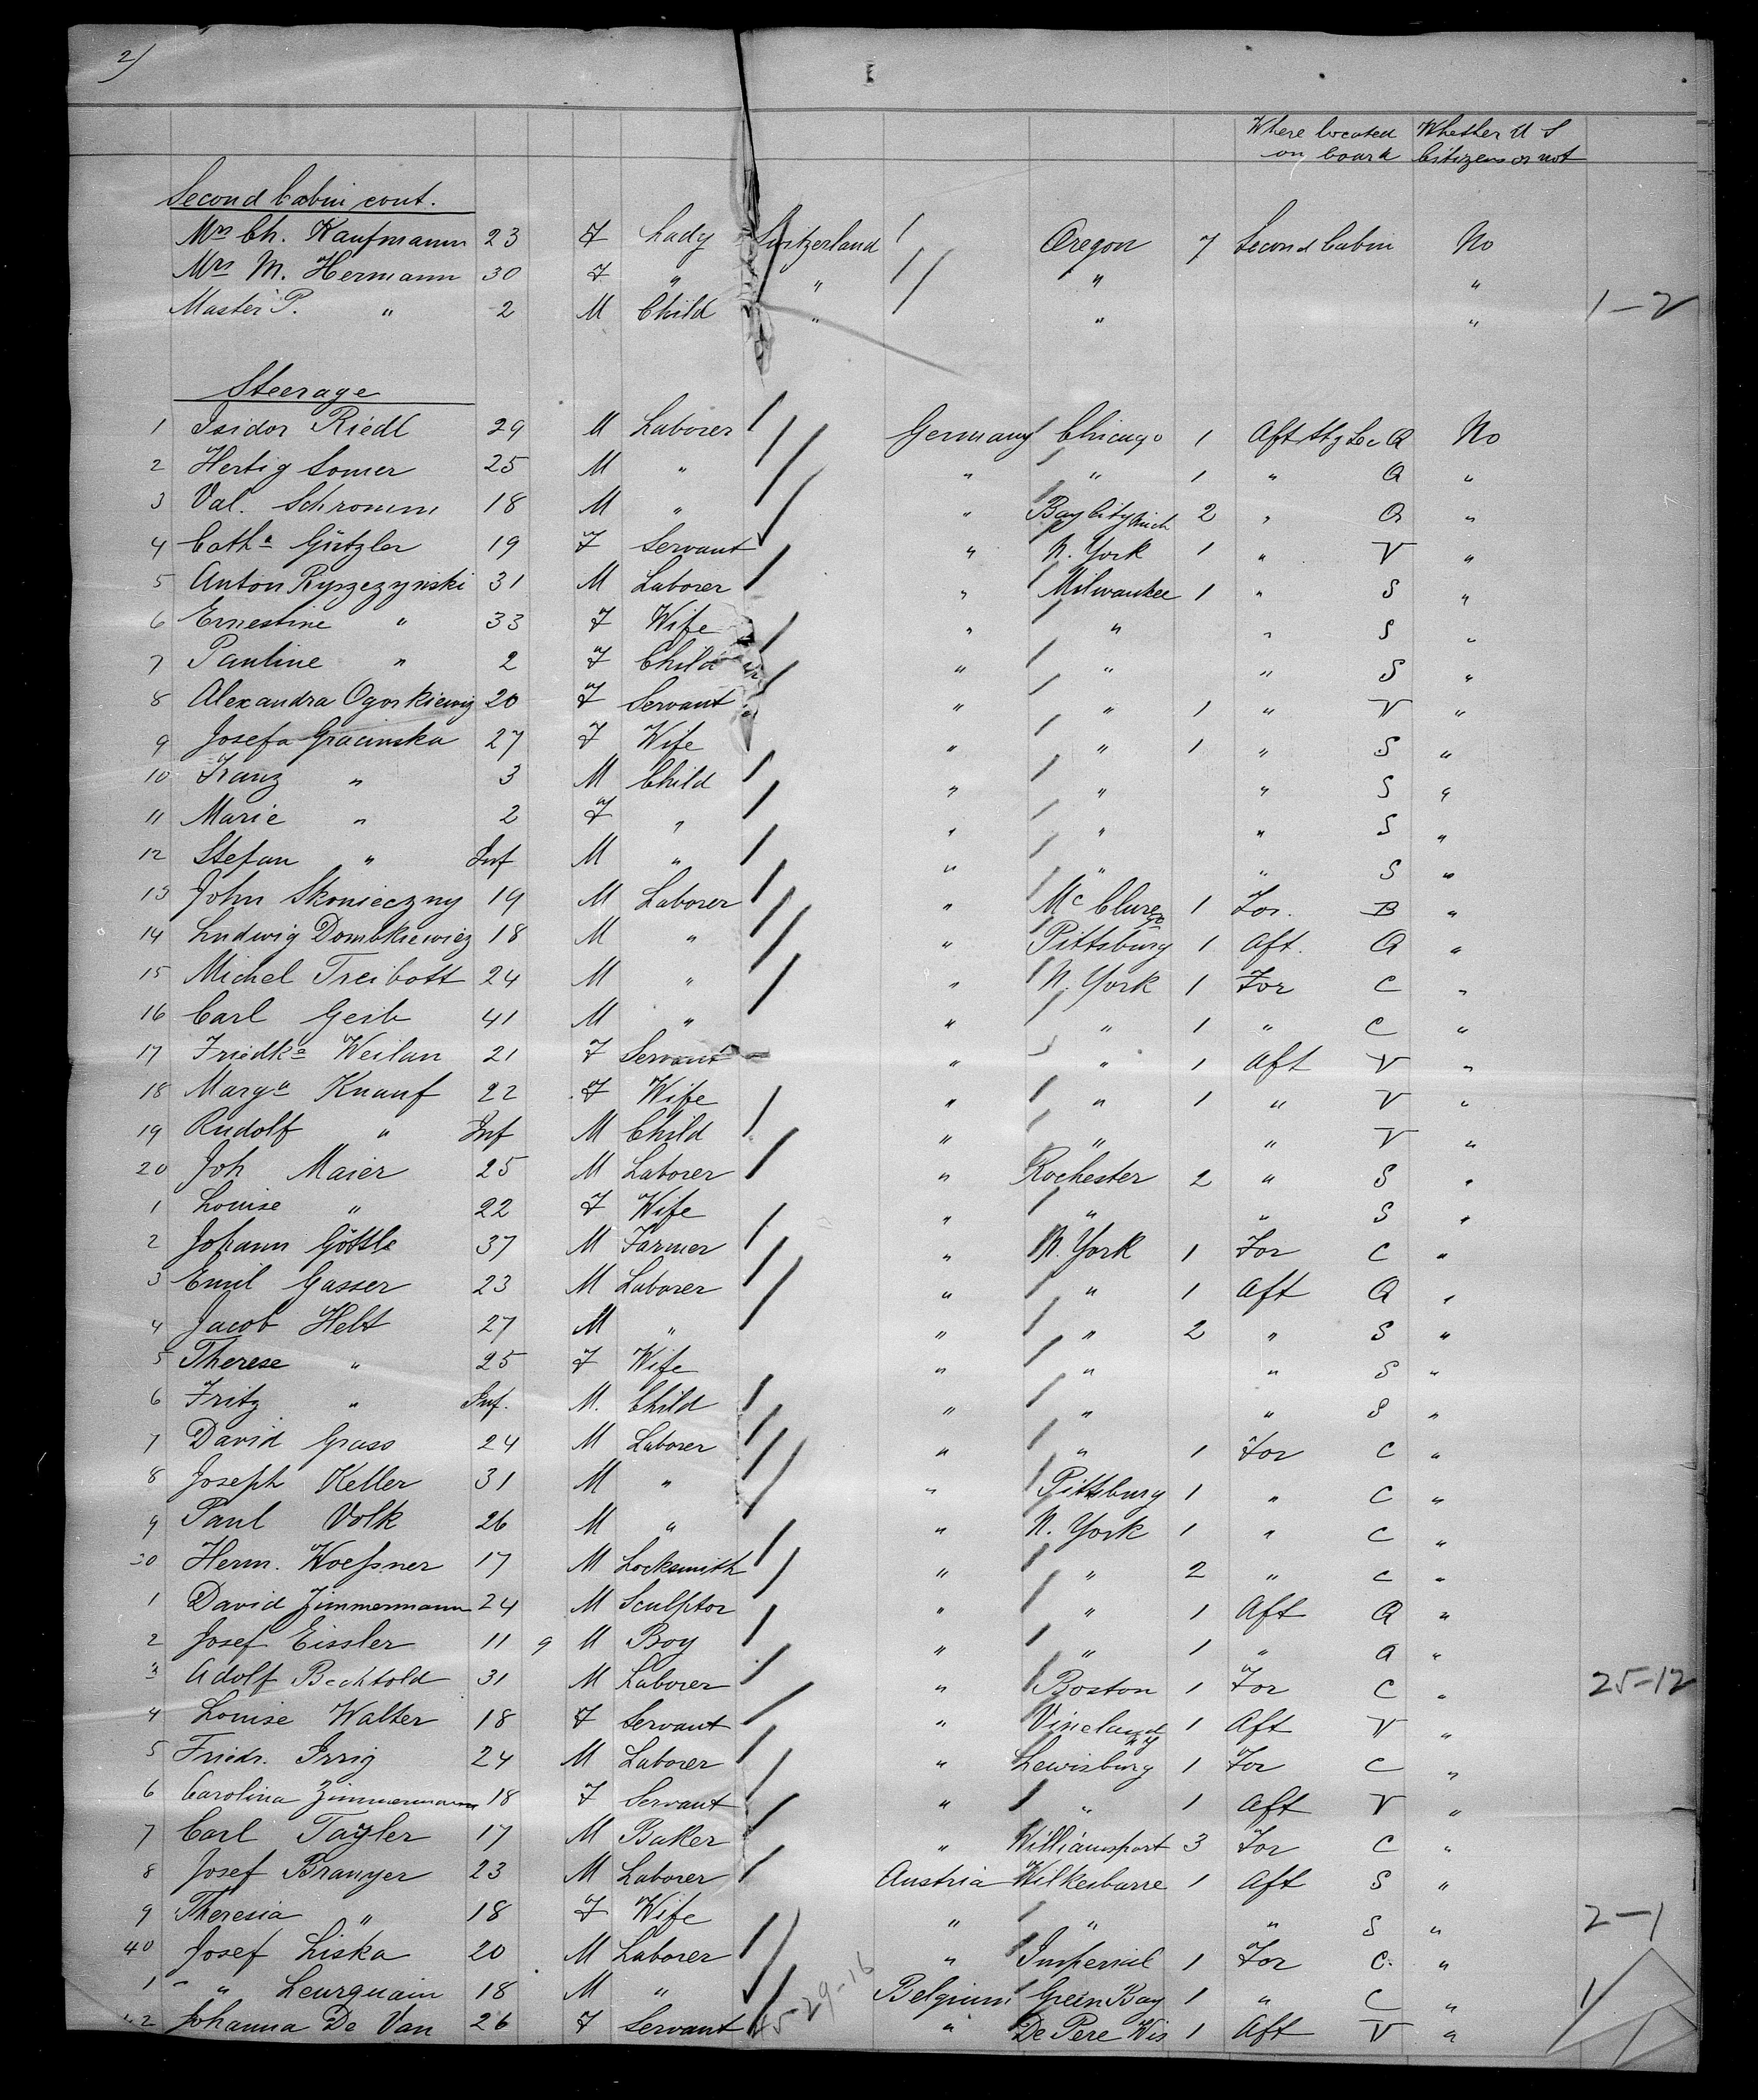 2)
Where located on board Whether U S Citizens or not
Second Cabin cont.
Mrs Ch. Kaufmann 23 F Lady Switzerland Oregon 7 Second Cabin No
Mrs M. Hermann 30 F " " " "
Master P. " 2 M Child " " " 1-2
Steerage
1 Isidor Riedl 29 M Laborer Germany Chicago 1 Aft Stg Sec Q No
2 Hertig Somer 25 M " " " 1 " Q "
3 Val. Schromm 18 M " " Bay City Mich 2 " Q "
4 Catha Gützler 19 F Servant " N. York 1 " V "
5 Anton Ryszezynski 31 M Laborer " Milwaukee 1 " S "
6 Ernestine " 33 F Wife " " " S "
7 Pauline " 2 F Child " " " S "
8 Alexandra Ogorkiewiz 20 F Servant " " 1 " V "
9 Josefa Gracinska 27 F Wife " " 1 " S "
10 Franz " 3 M Child " " " S "
11 Marie " 2 F " " " " S "
12 Stefan " Inf M " " " " S "
13 John Skonieczny 19 M Laborer " McClure 1 For. B "
14 Ludwig Dombkiewicz 18 M " " Pittsburg 1 Aft. Q "
15 Michel Treibott 24 M " " N. York 1 For C "
16 Carl Geib 41 M " " " 1 " C "
17 Friedka Weilan 21 F Servant " " 1 Aft V "
18 Marga Knauf 22 F Wife " " 1 " V "
19 Rudolf " Inf M Child " " " V "
20 Joh Maier 25 M Laborer " Rochester 2 " S "
1 Louise " 22 F Wife " " " S "
2 Johann Göttle 37 M Farmer " N. York 1 For C "
3 Emil Gasser 23 M Laborer " " 1 Aft Q "
4 Jacob Helt 27 M " " " 2 " S "
5 Therese " 25 F Wife " " " S "
6 Fritz " Inf. M. Child " " " S "
7 David Grass 24 M Laborer " " 1 For C "
8 Joseph Keller 31 M " " Pittsburg 1 " C "
9 Paul Volk 26 M " " N. York 1 " C "
30 Herm. Woeßner 17 M Locksmith " " 2 " C "
1 David Zimmermann 24 M Sculptor " " 1 Aft Q "
2 Josef Eissler 11 9 M Boy " " 1 " Q "
3 Adolf Bechtold 31 M Laborer " Boston 1 For C " 25-12
4 Louise Walter 18 F Servant " Vineland NY 1 Aft V "
5 Friedr. Irrig 24 M Laborer " Lewisburg 1 For C "
6 Carolina Zimmermann 18 F Servant " " 1 Aft V "
7 Carl Tayler 17 M Baker " Williamsport 3 For C "
8 Josef Branyer 23 M Laborer Austria Wilkesbarre 1 Aft S "
9 Theresia " 18 F Wife " " " S " 2-1
40 Josef Liska 20 M Laborer " Imperial 1 For C. "
1 " Leurquain 18 M " Belgium Green Bay 1 " C " 1/
42 Johanna De Van 26 F Servant 45-29-16 " De Pere Wis 1 Aft V " 1